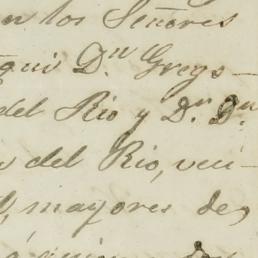 n los Señores
qui Dn Grego-
del Rio y Dr. Dn
del Rio, veci-
, mayores de